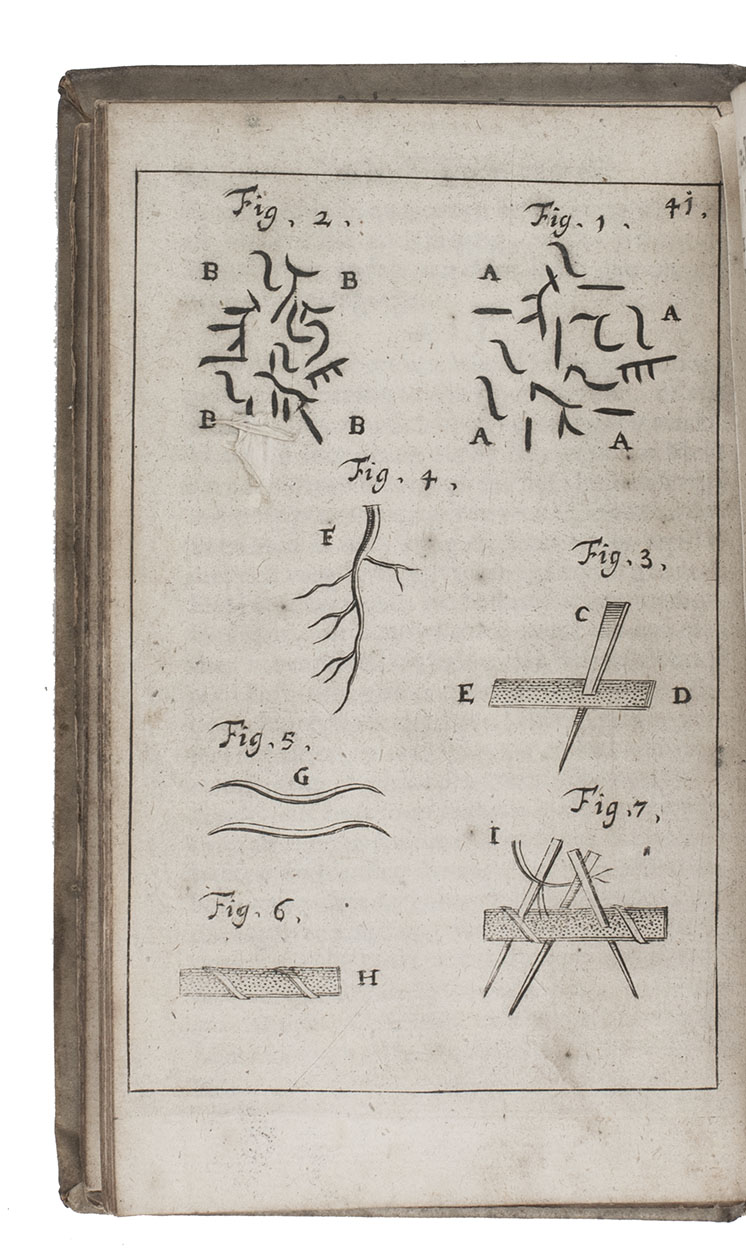 Fig. 2.
Fig. 1.
41.
B
B
A
A
B
B
A
A
Fig. 4.
F
Fig. 3.
C
E
D
Fig. 5.
G
Fig. 7.
I
Fig. 6.
H